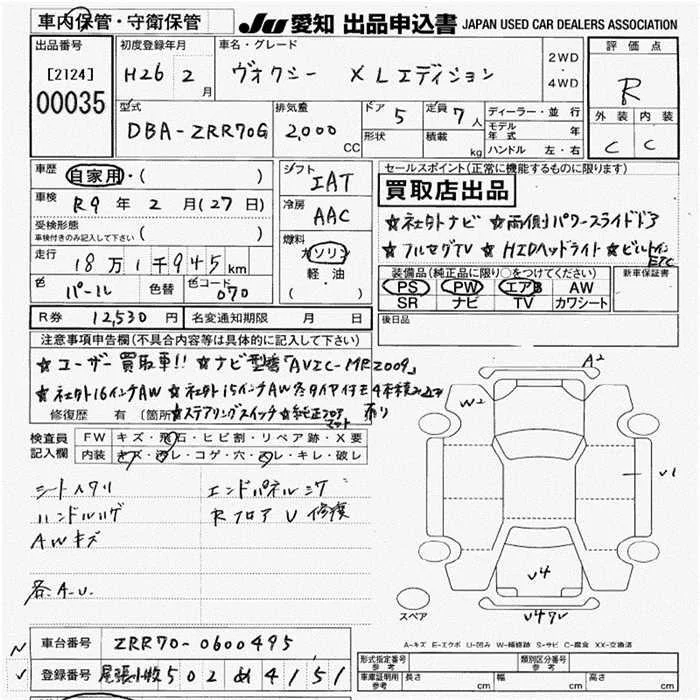 車内保管・守衛保管
JU 愛知 出品申込書 JAPAN USED CAR DEALERS ASSOCIATION
出品番号 初度登録年月 車名・グレード 評価点
[2124] H26 2月 ヴォクシー XLエディション 2WD・4WD R
00035
型式 排気量 ドア 5 定員 7人 ディーラー・並行 外装 内装
DBA-ZRR70G 2,000CC 形状 積載 kg モデル年式 年 C C
ハンドル 左・右
車歴 自家用・( ) シフト IAT セールスポイント(正常に機能するものに限ります)
車検 R9年2月(27日) 冷房 AAC 買取店出品
受検形態 車検付きのみ記入して下さい ( ) 燃料 ガソリン 軽・油 ( )
★社外ナビ ★両側パワースライドドア
★フルセグTV ★HIDヘッドライト ★ビルトインETC
走行 18万1千945km
装備品(純正品に限り○をつけてください) 新車保証書
色 パール 色替 色コード 070
PS PW エアB AW
SR ナビ TV カワシート
R券 12,530円 名変通知期限 月 日
後日品
注意事項申告欄(不具合内容等は具体的に記入して下さい)
★ユーザー買取車!! ★ナビ型番「AVIC-MRZ009」
★社外16インチAW ★社外15インチAW冬タイヤ付き4本積み込み
修復歴 有 (箇所 ★ステアリングスイッチ ★純正フロアマット 有り
検査員記入欄 FW キズ・飛石・ヒビ割・リペア跡・X要
内装 キズ・汚レ・コゲ・穴・スレ・キレ・破レ
シートヘタリ エンドパネルユガ
ハンドルハゲ RフロアU修復
AWキズ
各A.U.
A2
W2
U1
U4
U4
スペア
A=キズ E=エクボ U=凹み W=補修跡 S=サビ C=腐食 XX=交換済
車台番号 ZRR70-0600495
登録番号 尾張小牧502め4151
形式指定番号 参考 類別区分番号 参考
車庫証明用 参考 長さ cm 幅 cm 高さ cm